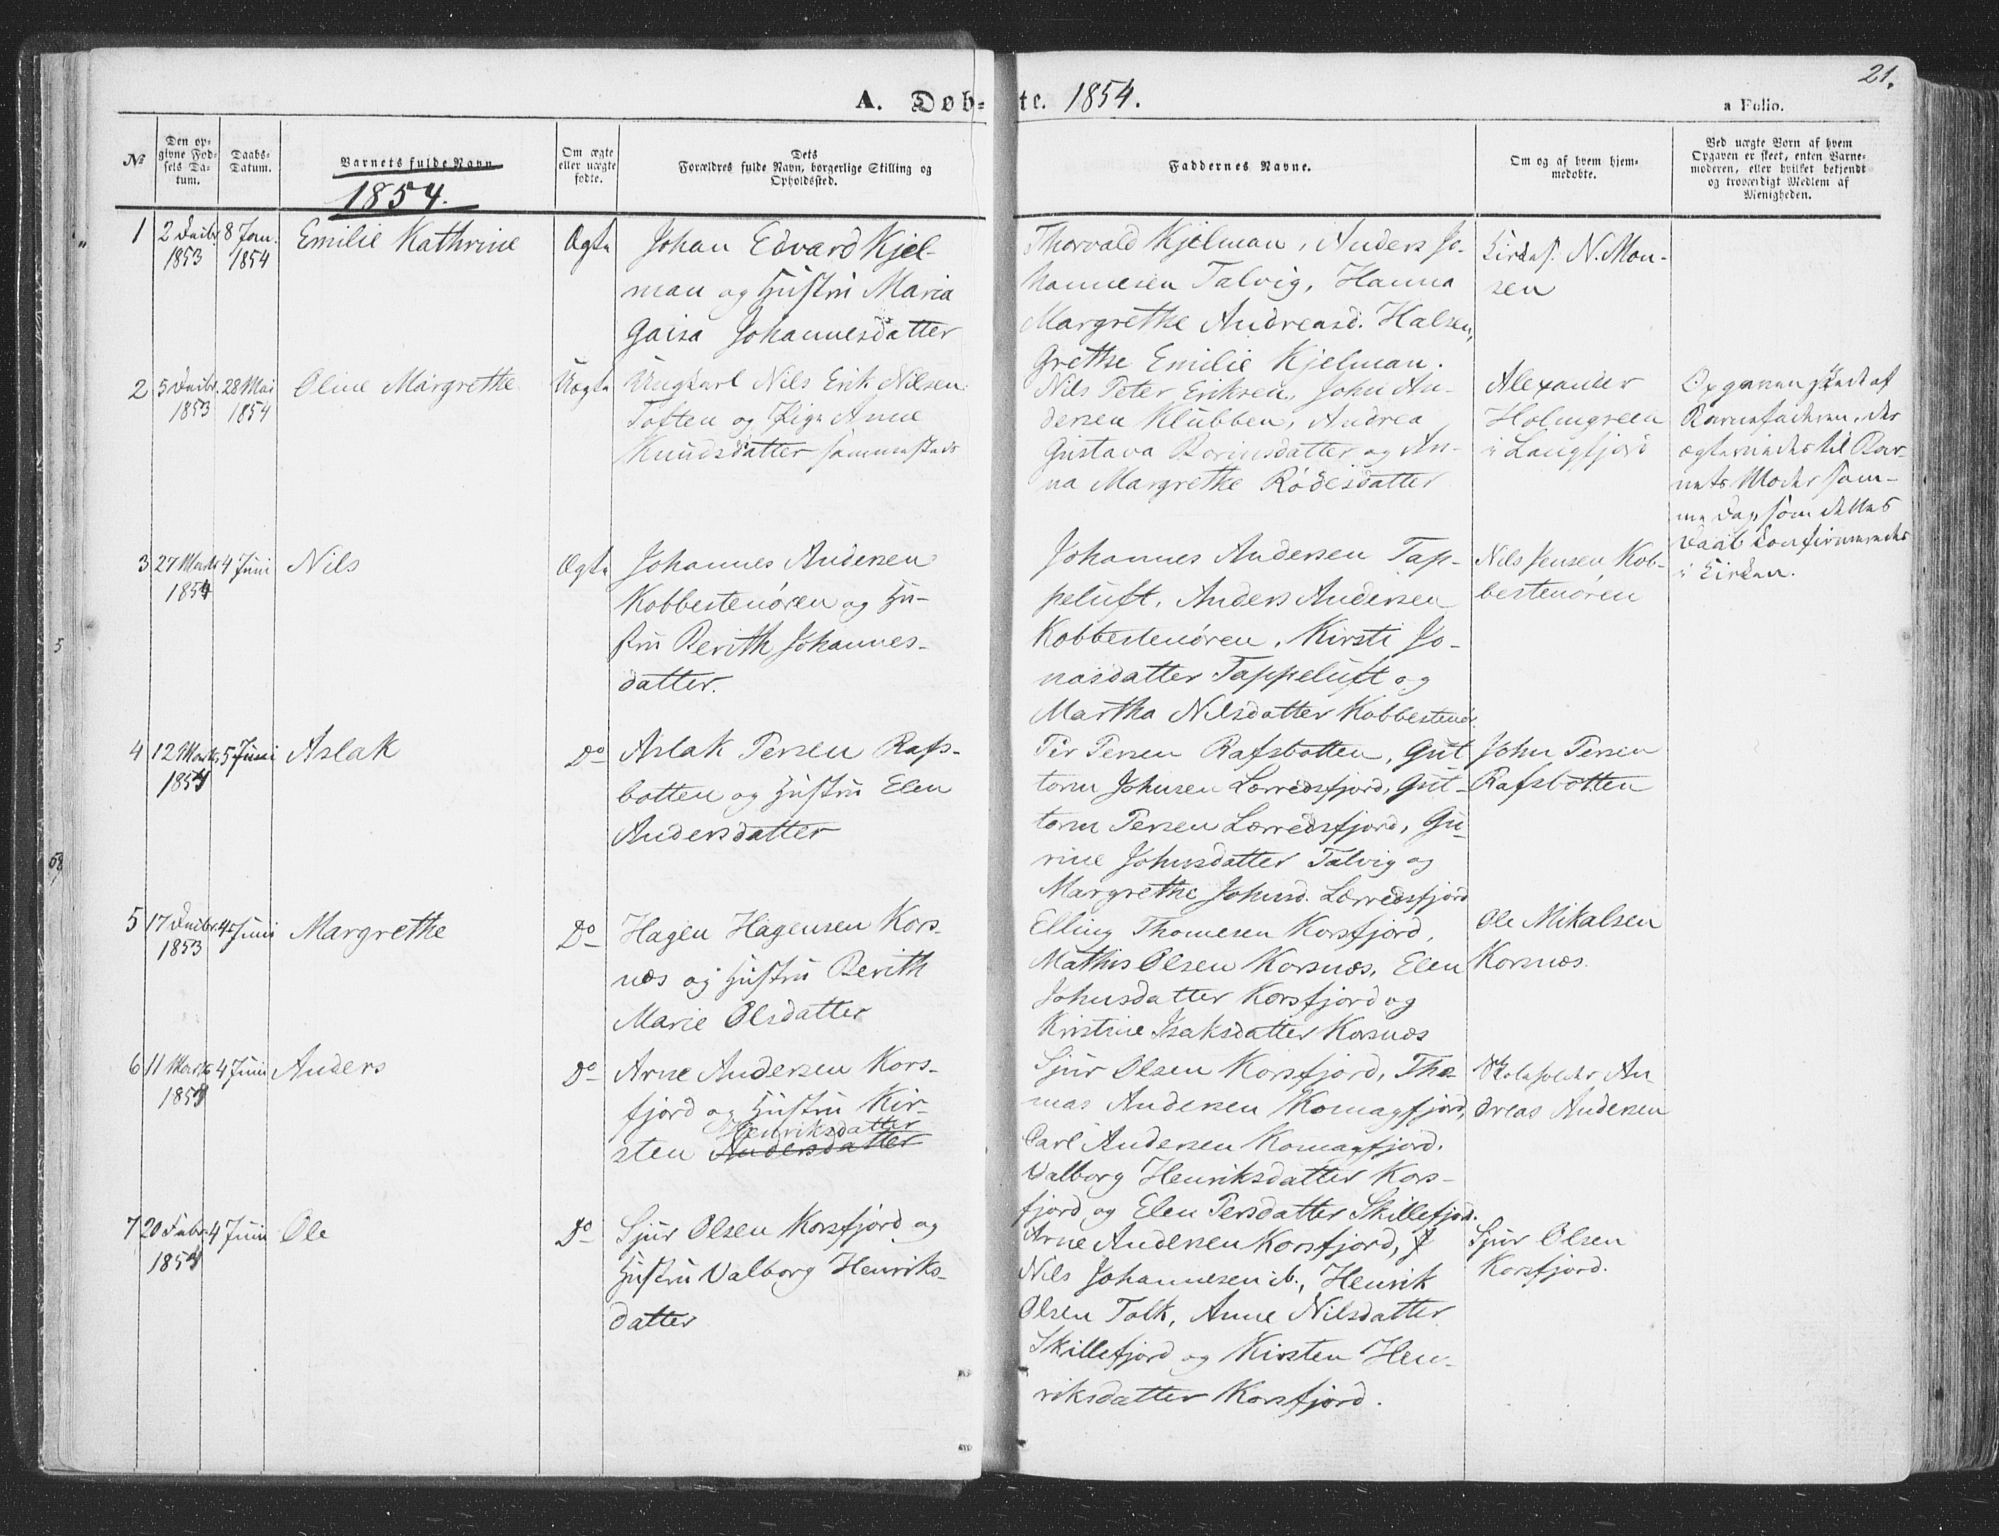 21.
A. Døb-te. 1854.
a Folio.
No
Den op-
givne Fød-
sels Da-
tum.
Daabs-
Datum.
Barnets fulde Navn
1854.
Om ægte
eller uægte
fødte.
Dets
Forældres fulde Navn, borgerlige Stilling og
Opholdssted.
Faddernes Navne.
Om og af hvem hjem-
medøbte.
Ved uægte Børn af hvem
Opgaven er skeet, enten Barne-
moderen, eller hvilket bekjendt
og troværdigt Medlem af
Menigheden.
1
2 Decbr.
1853
8 Jan.
1854
Emilie Kathrine
Ægte
Johan Edvard Kjel-
man og Hustru Maria
Gaisa Johannesdatter
Thorvald Kjelman, Anders Jo-
hannesen Talvig, Hanna
Margrethe Andreasd. Halsen,
Grethe Emilie Kjelman.
Kirkes. N. Mon-
sen
2
5 Decbr.
1853
28 Mai
1854
Oline Margrethe
Uægte
Ungkarl Nils Erik Nilsen
Toften og Pige Anne
Knudsdatter sammesteds
Nils Peter Eriksen, John An-
dersen Klubben, Andrea
Gustava Borinsdatter og An-
na Margrethe Rødesdatter
Alexander
Holmgreen
i Langfjord
Opgaven skeet af
Barnefaderen, der
ægteviedes til Bar-
nets Moder sam-
me Dag som dettes
Daab confirmeredes
i Kirken.
3
27 Marts
1854
4 Juni
Nils
Ægte
Johannes Andersen
Kobbestenøren og Hu-
stru Berith Johannes-
datter.
Johannes Andersen Tap-
peluft, Anders Andersen
Kobbestenøren, Kirsti Jo-
nasdatter Tappeluft og
Martha Nilsdatter Kobbestenør.
Nils Jensen Kob-
bestenøren
4
12 Marts
1854
5 Juni
Aslak
Do
Aslak Persen Rafs-
botten og Hustru Elen
Andersdatter
Per Persen Rafsbotten, Gut
torm Johnsen Lærredsfjord, Gut-
torm Persen Lærredsfjord, Gu-
rine Johnsdatter Talvig og
Margrethe Johnsd. Lærredsfjord
John Persen
Rafsbotten
5
17 Decbr.
1853
4 Juni
Margrethe
Do
Hagen Hagensen Kors-
næs og Hustru Berith
Marie Olsdatter
Elling Thomesen Korsfjord,
Mathis Olsen Korsnæs, Elen
Johnsdatter Korsfjord og
Kristine Isaksdatter Korsnæs
Ole Mikalsen
Korsnæs.
6
11 Marts
1854
4 Juni
Anders
Do
Arne Andersen Kors-
fjord og Hustru Kir-
Henriksdatter
sten Andersdatter
Sjur Olsen Korsfjord, Tho-
mas Andersen Komagfjord,
Carl Andersen Komagfjord.
Valborg Henriksdatter Kors-
fjord og Elen Persdatter Skillefjord.
Skoleholder An-
dreas Andersen
7
20 Febr.
1854
4 Juni
Ole
Do
Sjur Olsen Korsfjord og
Hustru Valborg Henriks-
datter
Arne Andersen Korsfjord,
Nils Johannesen ib., Henrik
Olsen Tolk, Anne Nilsdatter
Skillefjord og Kirsten Hen-
riksdatter Korsfjord.
Sjur Olsen
Korsfjord.